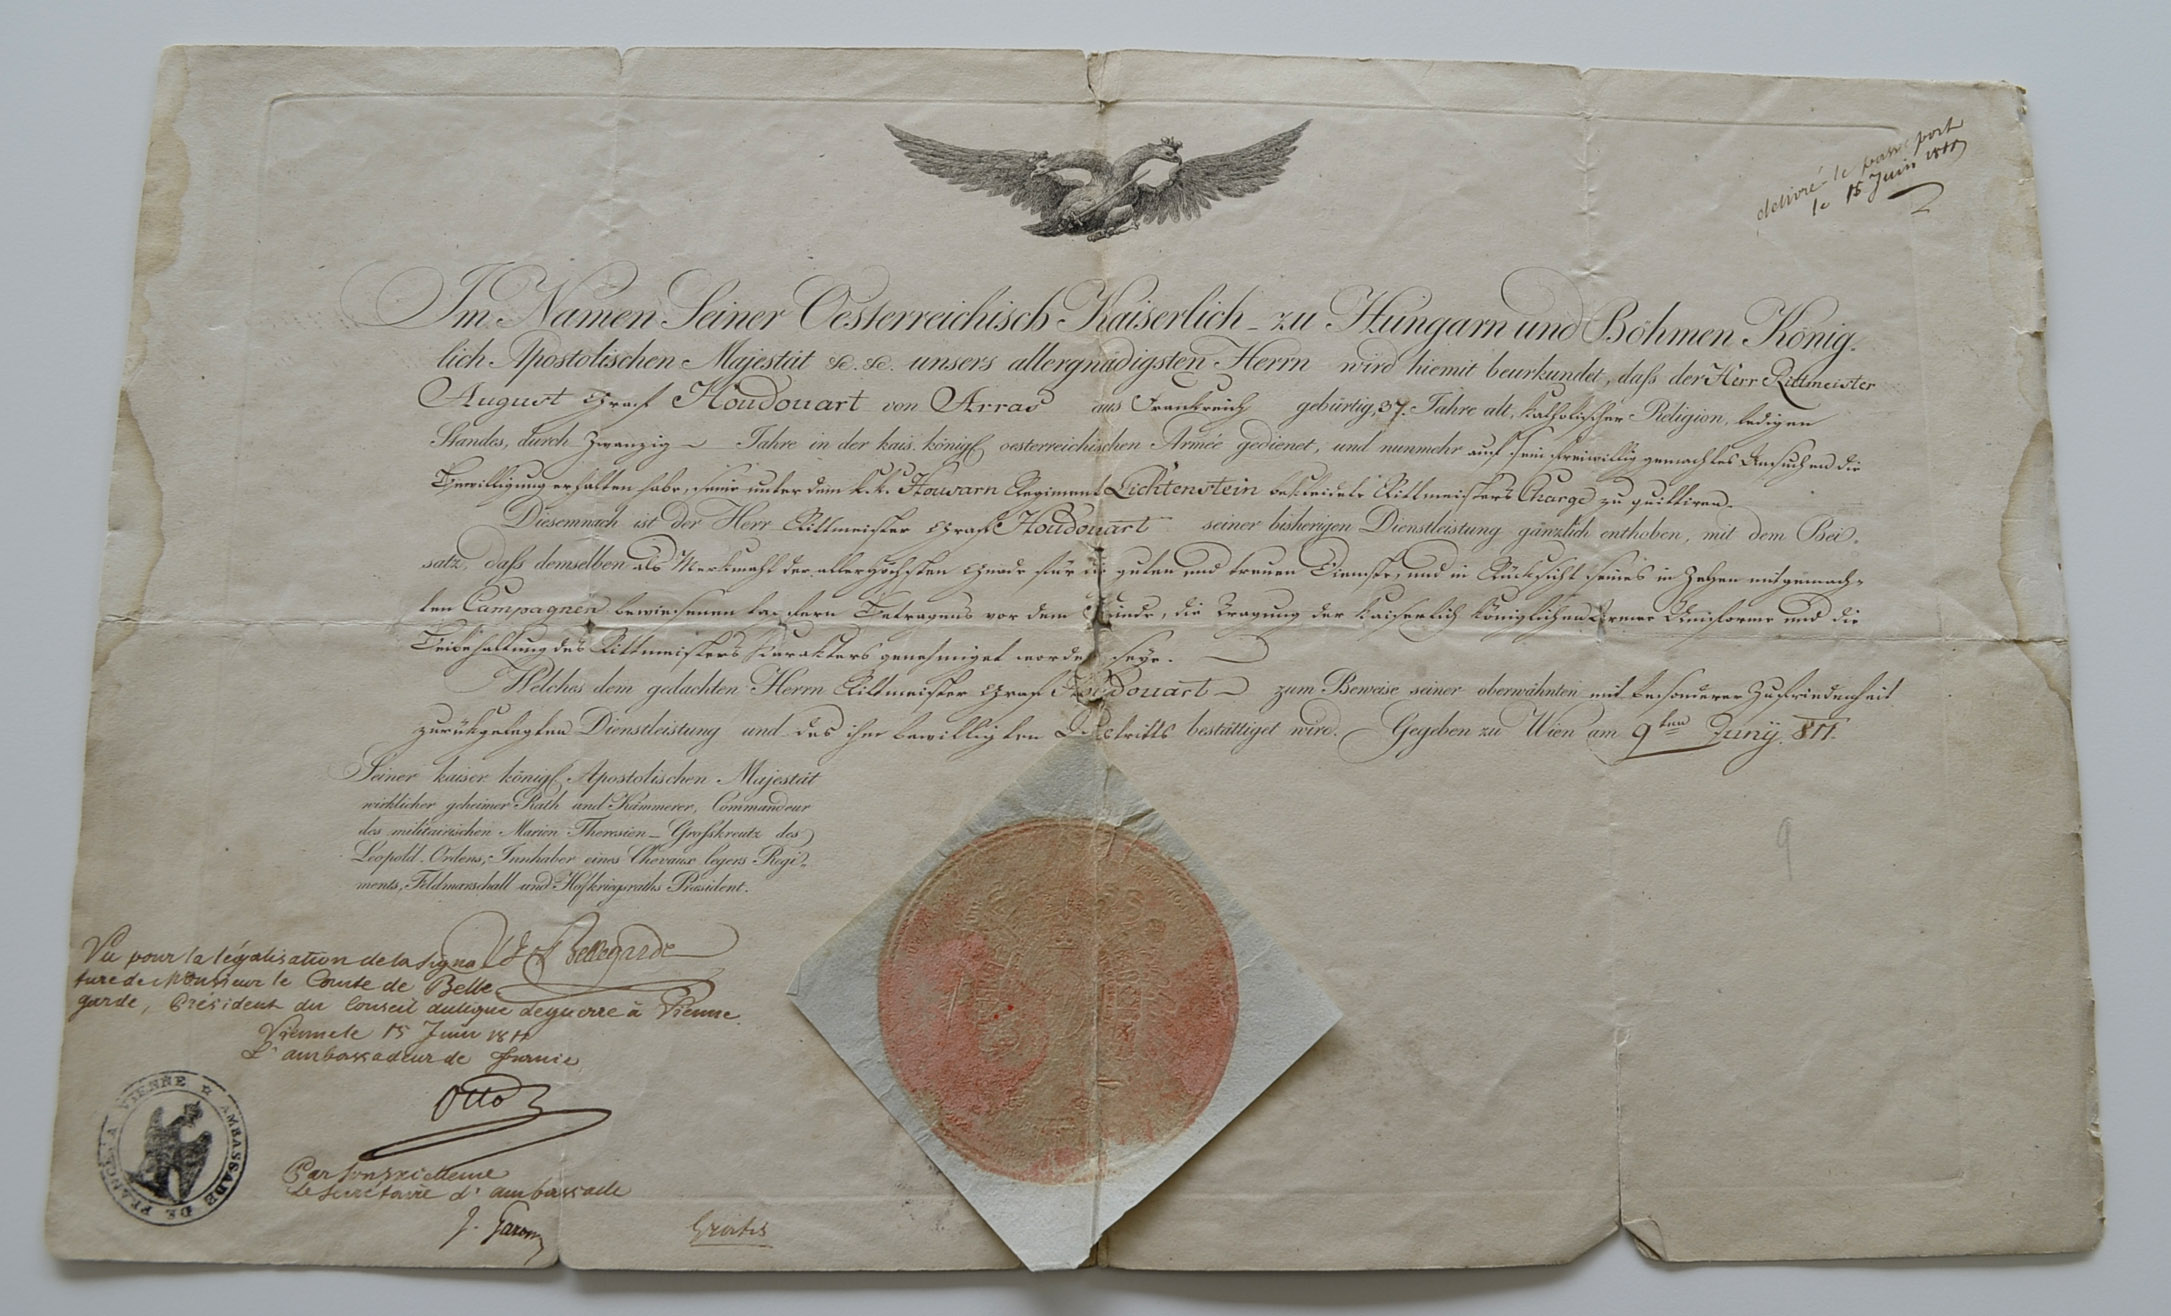 délivré le passe port
le 15 Juin 1811
Im Namen Seiner Oesterreichisch Kaiserlich - zu Hungarn und Böhmen König-
lich Apostolischen Majestät &c. &c. unsers allergnädigsten Herrn wird hiemit beurkundet, daſs der Herr Rittmeister
August Graf Houdouart von Arras aus Frankreich gebürtig, 37. Jahre alt, katholischer Religion, ledigen
Standes, durch Zwanzig Jahre in der kais. königl. oesterreichischen Armée gedienet, und nunmehr auf sein freiwillig gemachtes Ansuchen die
Bewilligung erhalten habe, seine unter dem k. k. Houzarn Regiment Lichtenstein bekleidete Rittmeisters Charge zu quittiren.
Diesemnach ist der Herr Rittmeister Graf Houdouart seiner bisherigen Dienstleistung gänzlich enthoben, mit dem Bei-
satz, daſs demselben als Merkmahl der allerhöchsten Gnade für die guten und treuen Dienste, und in Rücksicht seines in Zehen mitgemach-
ten Campagnen bewiesenen tapfern Betragens vor dem Feinde, die Tragung der kaiserlich königlichen Armee Uniforme und die
Beibehaltung des Rittmeisters Karakters genehmiget worden seye.
Welches dem gedachten Herrn Rittmeister Graf Houdouart zum Beweise seiner oberwähnten mit besonderer Zufriedenheit
zurückgelegten Dienstleistung und des ihm bewilligten Austritts bestättiget wird. Gegeben zu Wien am 9ten Juny 811.
Seiner kaiser. königl. Apostolischen Majestät
wirklicher geheimer Rath und Kämmerer, Commandeur
des militairischen Marien Theresien - Groſskreutz des
Leopold-Ordens, Innhaber eines Chevaux legers Regi-
ments, Feldmarschall und Hofkriegsraths Präsident.
Bellegarde
Vu pour la légalisation de la signa
ture de Monsieur le Comte de Belle
garde, Président du Conseil aulique de guerre à Vienne.
Vienne le 15 Juin 1811
L'ambassadeur de France
Otto
AMBASSADE DE FRANCE A VIENNE
Par Son Excellence
Le Secrétaire d'ambassade
Gratis
9